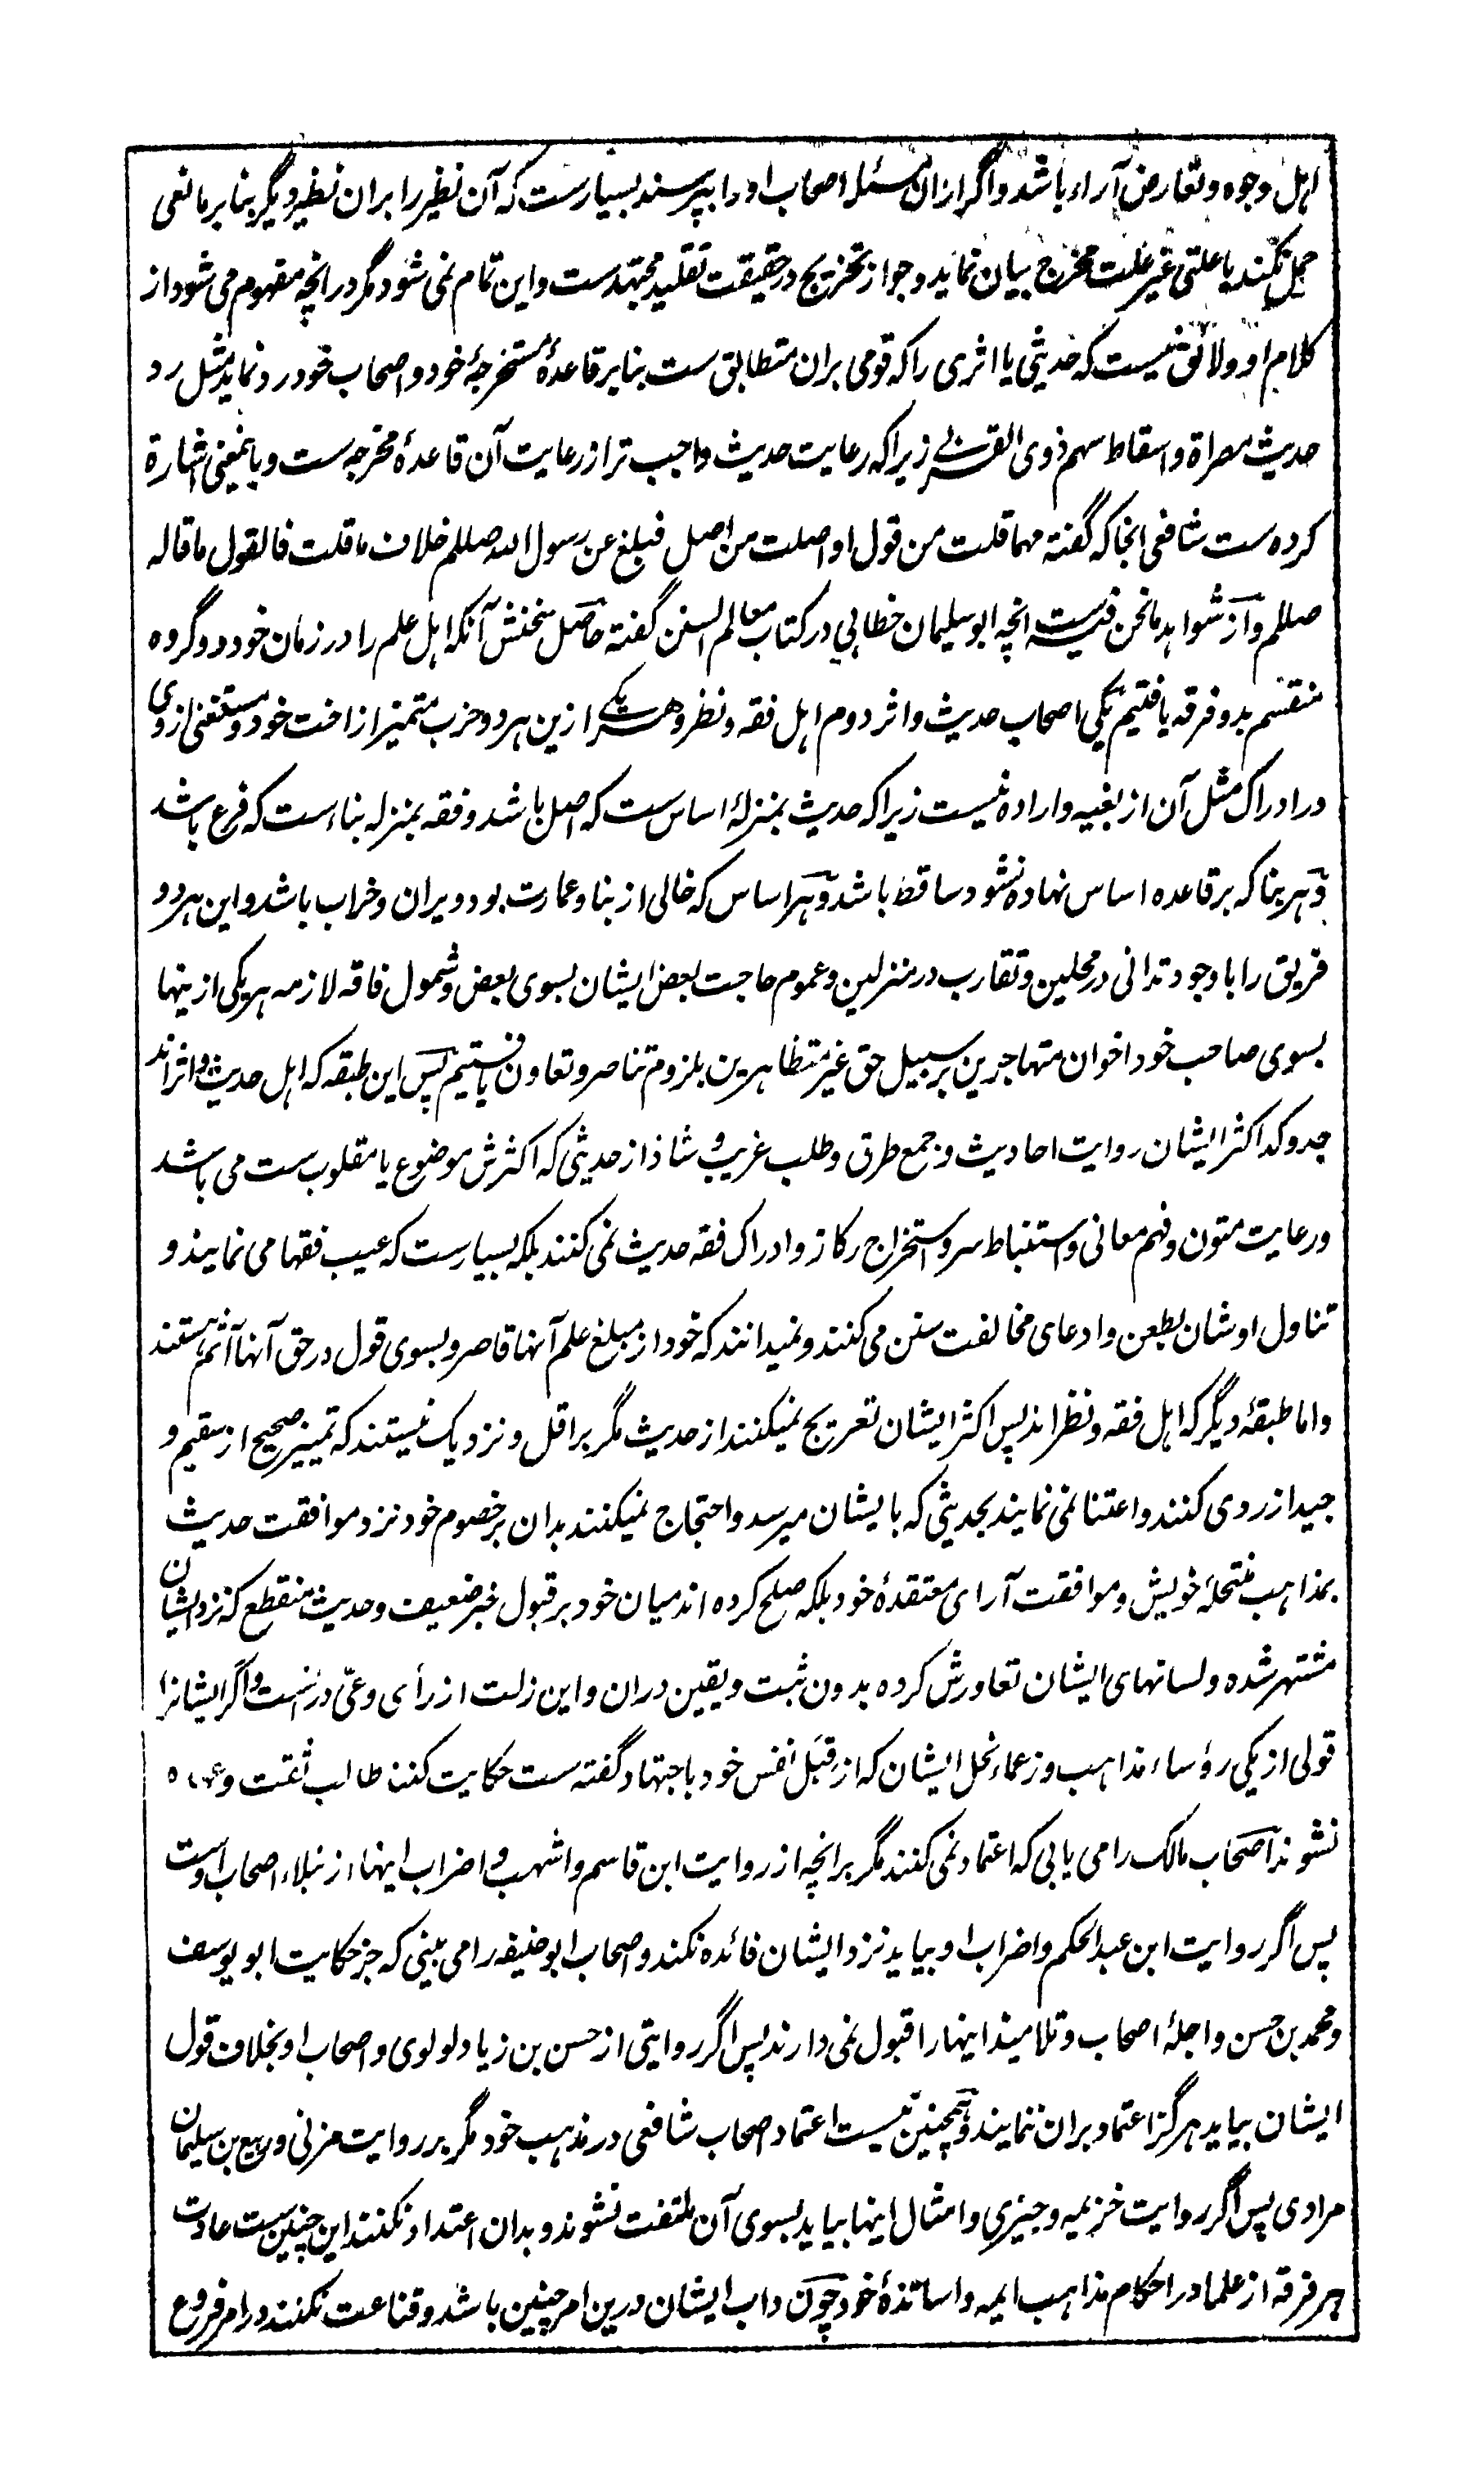 اہل وجوه وتعارض آراء باشد واگر ازان مسئله اصحاب او را بپرسند بسیارست که آن نظیر را بران نظیر دیگر بنا بر مانعی
حمل نکنند یا علتی غیر علت مخرج بیان نماید وجواز تخریج در حقیقت تقلید مجتہدست واین تمام نمی شود مگر در انچه مفہوم می شود از
کلام او ولائق نیست که حدیثی یا اثری را که قومی بران متطابق ست بنابر قاعدۀ مستخرجۀ خود واصحاب خود رد نماید مثل رد
حدیث مصراة واسقاط سہم ذوی القربے زیرا که رعایت حدیث واجب تر از رعایت آن قاعدۀ مخرجه ست وباینمعنی اشارة
کرده ست شافعی انجا که گفته مہما قلت من قول او اصلت من اصل فبلغ عن رسول الله صللم خلاف ما قلت فالقول ما قاله
صللم واز شواہد ما نحن فیه ست انچه ابوسلیمان خطابی در کتاب معالم السنن گفته حاصل سخنش آنکه اہل علم را در زمان خود دو گروه
منقسم بدو فرقه یافتیم یکی اصحاب حدیث واثر دوم اہل فقه ونظر وهر یکے ازین ہر دو حزب متمیز از اخت خود ومستغنی از وی
در ادراک مثل آن از بغیه واراده نیست زیرا که حدیث بمنزلۀ اساس ست که اصل باشد وفقه بمنزله بناء ست که فرع باشد
وہر بنا که بر قاعده اساس نہاده نشود ساقط باشد وہر اساس که خالی از بنا وعمارت بود ویران وخراب باشد واین ہر دو
فریق را با وجود تدانی در محلین وتقارب در منزلین وعموم حاجت بعض ایشان بسوی بعض وشمول فاقه لازمه ہر یکی ازینہا
بسوی صاحب خود اخوان متہاجرین بر سبیل حق غیر متظاہرین بلزوم تناصر وتعاون یافتیم پس این طبقه که اہل حدیث واثر اند
جد وکد اکثر ایشان روایت احادیث وجمع طرق وطلب غریب وشاذ از حدیثی که اکثرش موضوع یا مقلوب ست می باشد
ورعایت متون وفہم معانی واستنباط سر واستخراج رکاز وادراک فقه حدیث نمی کنند بلکه بسیارست که عیب فقہا می نمایند و
تناول اوشان بطعن وادعای مخالفت سنن می کنند ونمیدانند که خود از مبلغ علم آنہا قاصر وبسوی قول در حق آنہا آثم ہستند
واما طبقۀ دیگر که اہل فقه ونظر اند پس اکثر ایشان تعریج نمیکنند از حدیث مگر بر اقل ونزدیک نیستند که تمییز صحیح از سقیم و
جید از ردی کنند واعتنا نمی نمایند بحدیثی که بایشان میرسد واحتجاج نمیکنند بدان بر خصوم خود نزد موافقت حدیث
بمذاہب منتحلۀ خویش وموافقت آرای معتقدۀ خود بلکه صلح کرده اند میان خود بر قبول خبر ضعیف وحدیث منقطع که نزد ایشان
مشتہر شده ولسانہای ایشان تعاورش کرده بدون ثبت ویقین دران واین زلت از رأی وعیّ درنست واگر ایشانرا
قولی از یکی رؤساء مذاہب وزعماء نحل ایشان که از قبَل نفس خود باجتہاد گفته ست حکایت کنند طالب ثقت وعہده
نشوند اصحاب مالک را می یابی که اعتماد نمی کنند مگر بر انچه از روایت ابن قاسم واشہب واضراب اینہا از نبلاء اصحاب اوست
پس اگر روایت ابن عبد الحکم واضراب او بیاید نزد ایشان فائده نکند واصحاب ابوحنیفه را می بینی که جز حکایت ابو یوسف
ومحمد بن حسن واجلۀ اصحاب وتلامیذ اینہا را قبول نمی دارند پس اگر روایتی از حسن بن زیاد لولوی واصحاب او بخلاف قول
ایشان بیاید ہرگز اعتماد بران ننمایند وہمچنین نیست اعتماد اصحاب شافعی در مذہب خود مگر بر روایت مزنی وربیع بن سلیمان
مرادی پس اگر روایت خزیمه وجیزی وامثال اینہا بیاید بسوی آن ملتفت نشوند وبدان اعتداد نکنند این چنین ست عادت
ہر فرقه از علما در احکام مذاہب ایمه واساتذۀ خود چون داب ایشان درین امر چنین باشد وقناعت نکنند در امر فروع